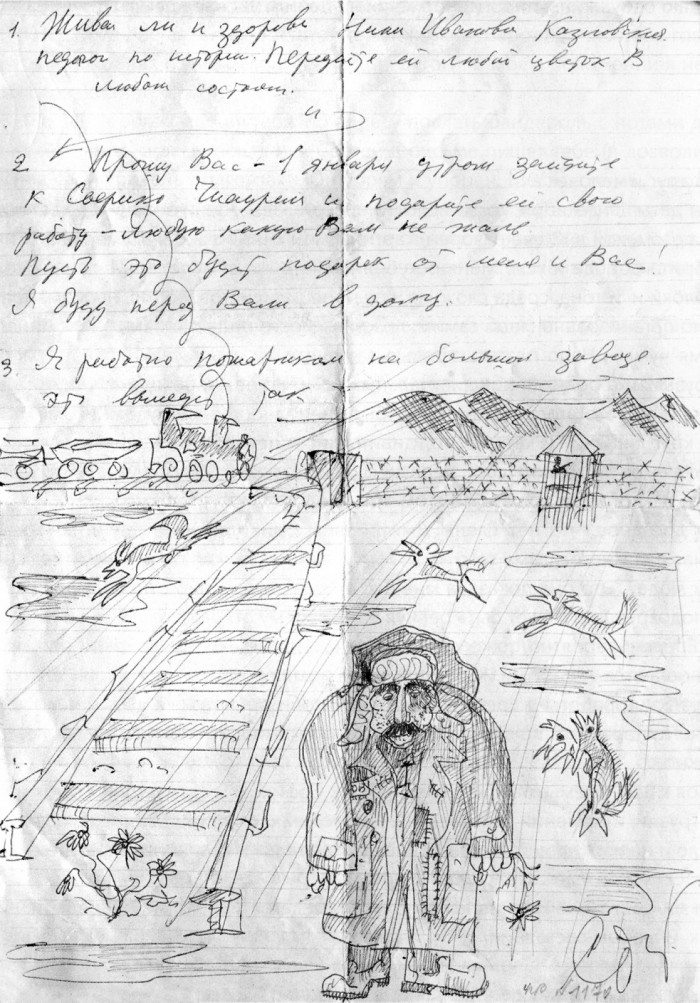 1. Жива ли и здорова Нина Иванова Казловская
педагог по истории. Передайте ей любой цветок в
любом состоян.
и
2 Прошу Вас – 1 января утром зайдите
к Софико Чиаурели и подарите ей свою
работу – любую какую Вам не жаль
Пусть это будет подарок от меня и Вас!
Я буду перед Вами в долгу.
3. Я работаю пожарником на большом заводе.
Это выглядит так